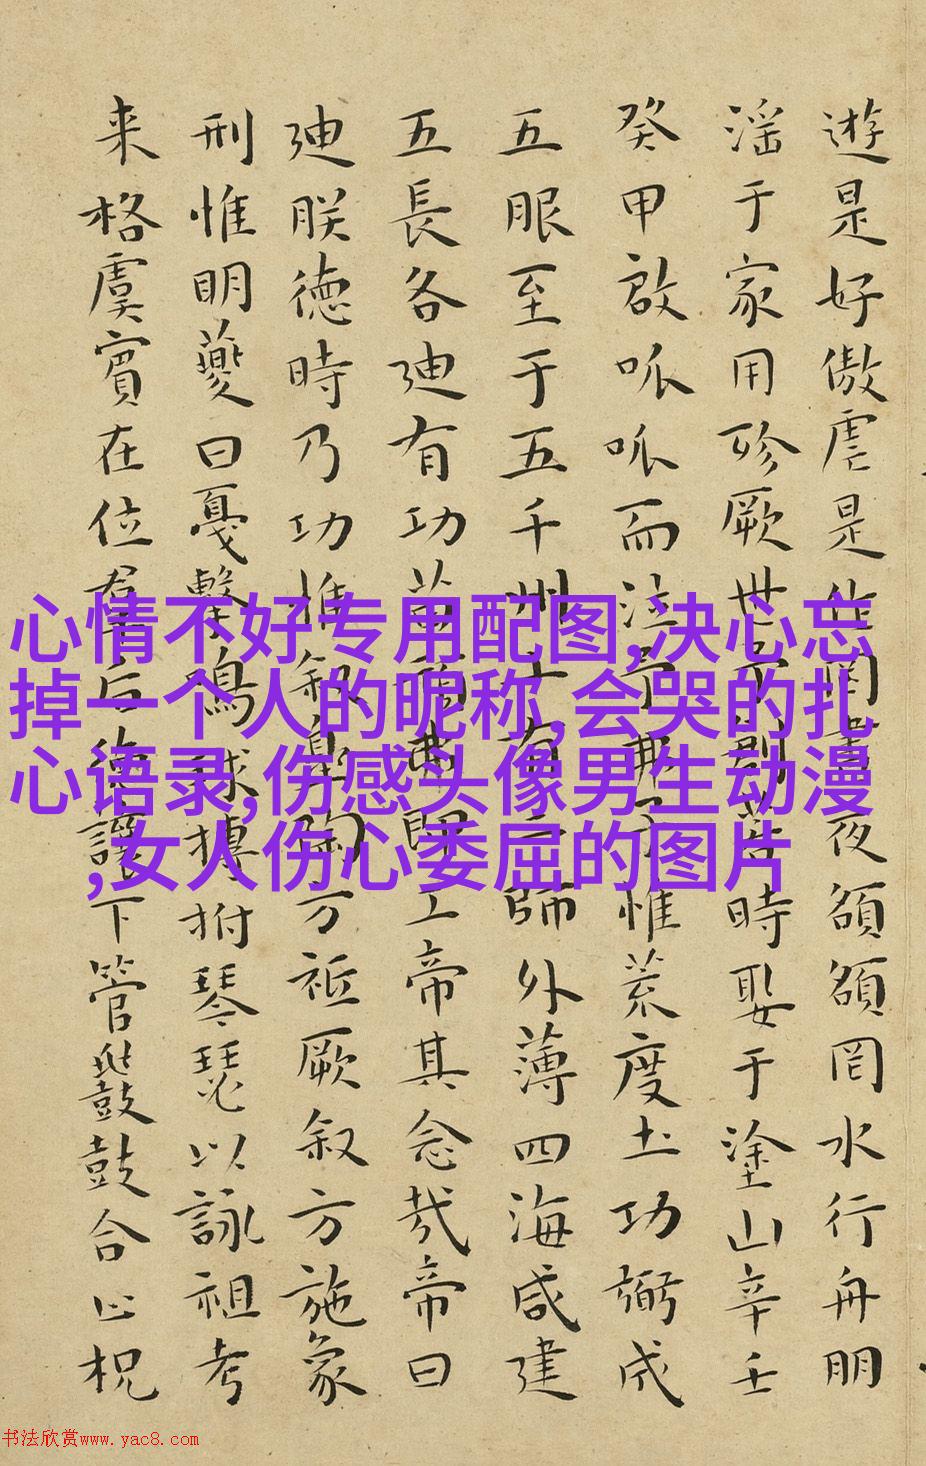 遊是好傲虐是作罔晝夜頟頟罔水行舟朋
淫于家用殄厥世予創若時娶于塗山辛壬
癸甲啟呱呱而泣予弗子惟荒度土功弼成
五服至于五千州十有二師外薄四海咸建
五長各迪有功苗頑弗即工帝其念哉帝曰
迪朕德時乃功惟叙臯陶方祗厥叙方施象
刑惟明夔曰戞擊鳴球搏拊琴瑟以詠祖考
来格虞賓在位羣后德讓下管鼗鼓合止柷
心情不好专用配图,决心忘
掉一个人的昵称,会哭的扎
心语录,伤感头像男生动漫
,女人伤心委屈的图片
书法欣赏www.yac8.com